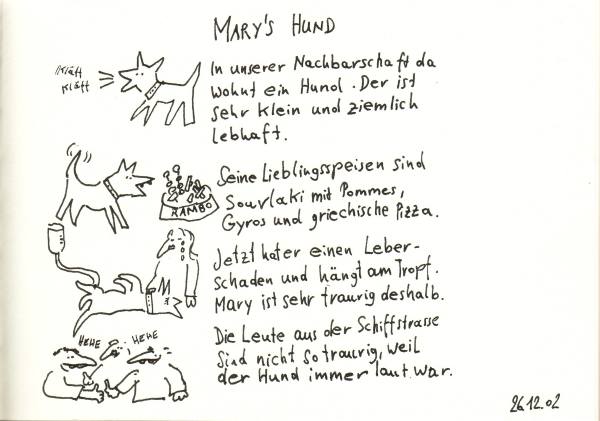 MARY'S HUND
Kläff
Kläff
In unserer Nachbarschaft da
wohnt ein Hund. Der ist
sehr klein und ziemlich
lebhaft.
Seine Lieblingsspeisen sind
Souvlaki mit Pommes,
Gyros und griechische Pizza.
RAMBO
Jetzt hat er einen Leber-
schaden und hängt am Tropf.
Mary ist sehr traurig deshalb.
HEHE
HEHE
Die Leute aus der Schiffstrasse
sind nicht so traurig, weil
der Hund immer laut war.
26.12.02